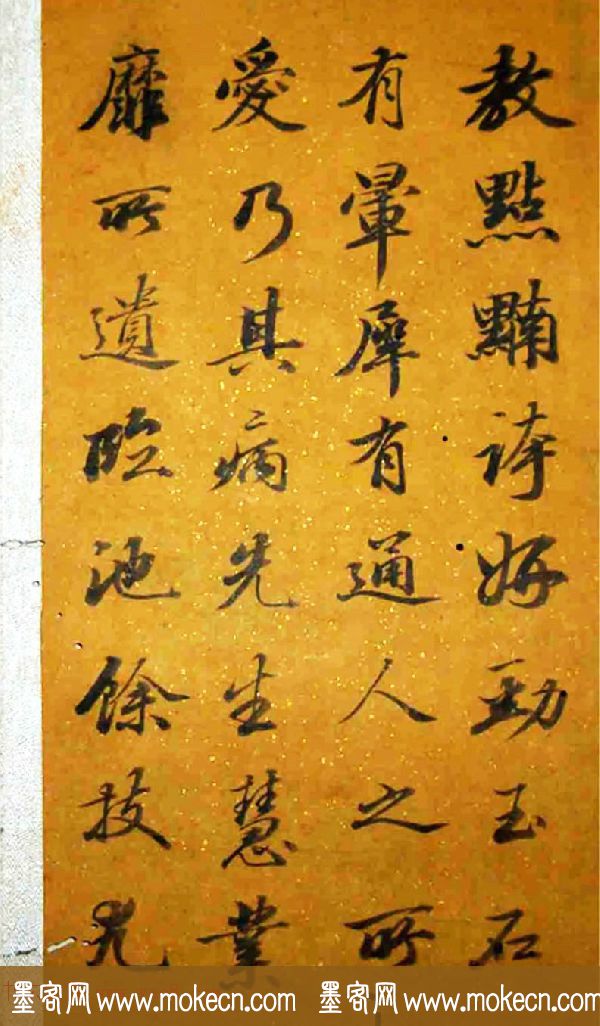 教點黼誇妍勁玉石
有暈犀有通人之所
愛乃其病先生慧業
靡所遺臨池餘技兄
墨客网 www.mokecn.com 墨客网 www.mokecn.com